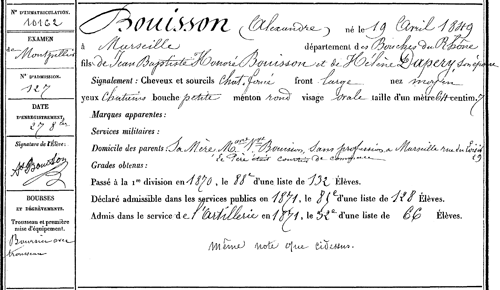 N° D'IMMATRICULATION.
10162
EXAMEN
de Montpellier
N° D'ADMISSION.
127
DATE
D'ENREGISTREMENT.
27 8bre
Signature de l'Élève:
A. Bouisson
BOURSES
ET DÉCRÈTEMENTS.
Trousseau et première
mise d'équipement.
Boursier avec
trousseau
Bouisson (Alexandre) né le 19 Avril 1849
à Marseille département des Bouches du Rhône
fils de Jean Baptiste Honoré Bouisson et de Hélène Dapery, son épouse
Signalement : Cheveux et sourcils chat. foncé front large nez moyen
yeux chatains bouche petite menton rond visage ovale taille d'un mètre 64 centim. 7
Marques apparentes :
Services militaires :
Domicile des parents : Sa Mère Mme Vve Bouisson, sans profession, à Marseille rue du
Le Père était courtier de commerce
Grades obtenus :
Passé à la 1re division en 1870, le 88e d'une liste de 132 Élèves.
Déclaré admissible dans les services publics en 1871, le 81e d'une liste de 128 Élèves.
Admis dans le service de l'Artillerie en 1871, le 32e d'une liste de 66 Élèves.
même note que cidessus.